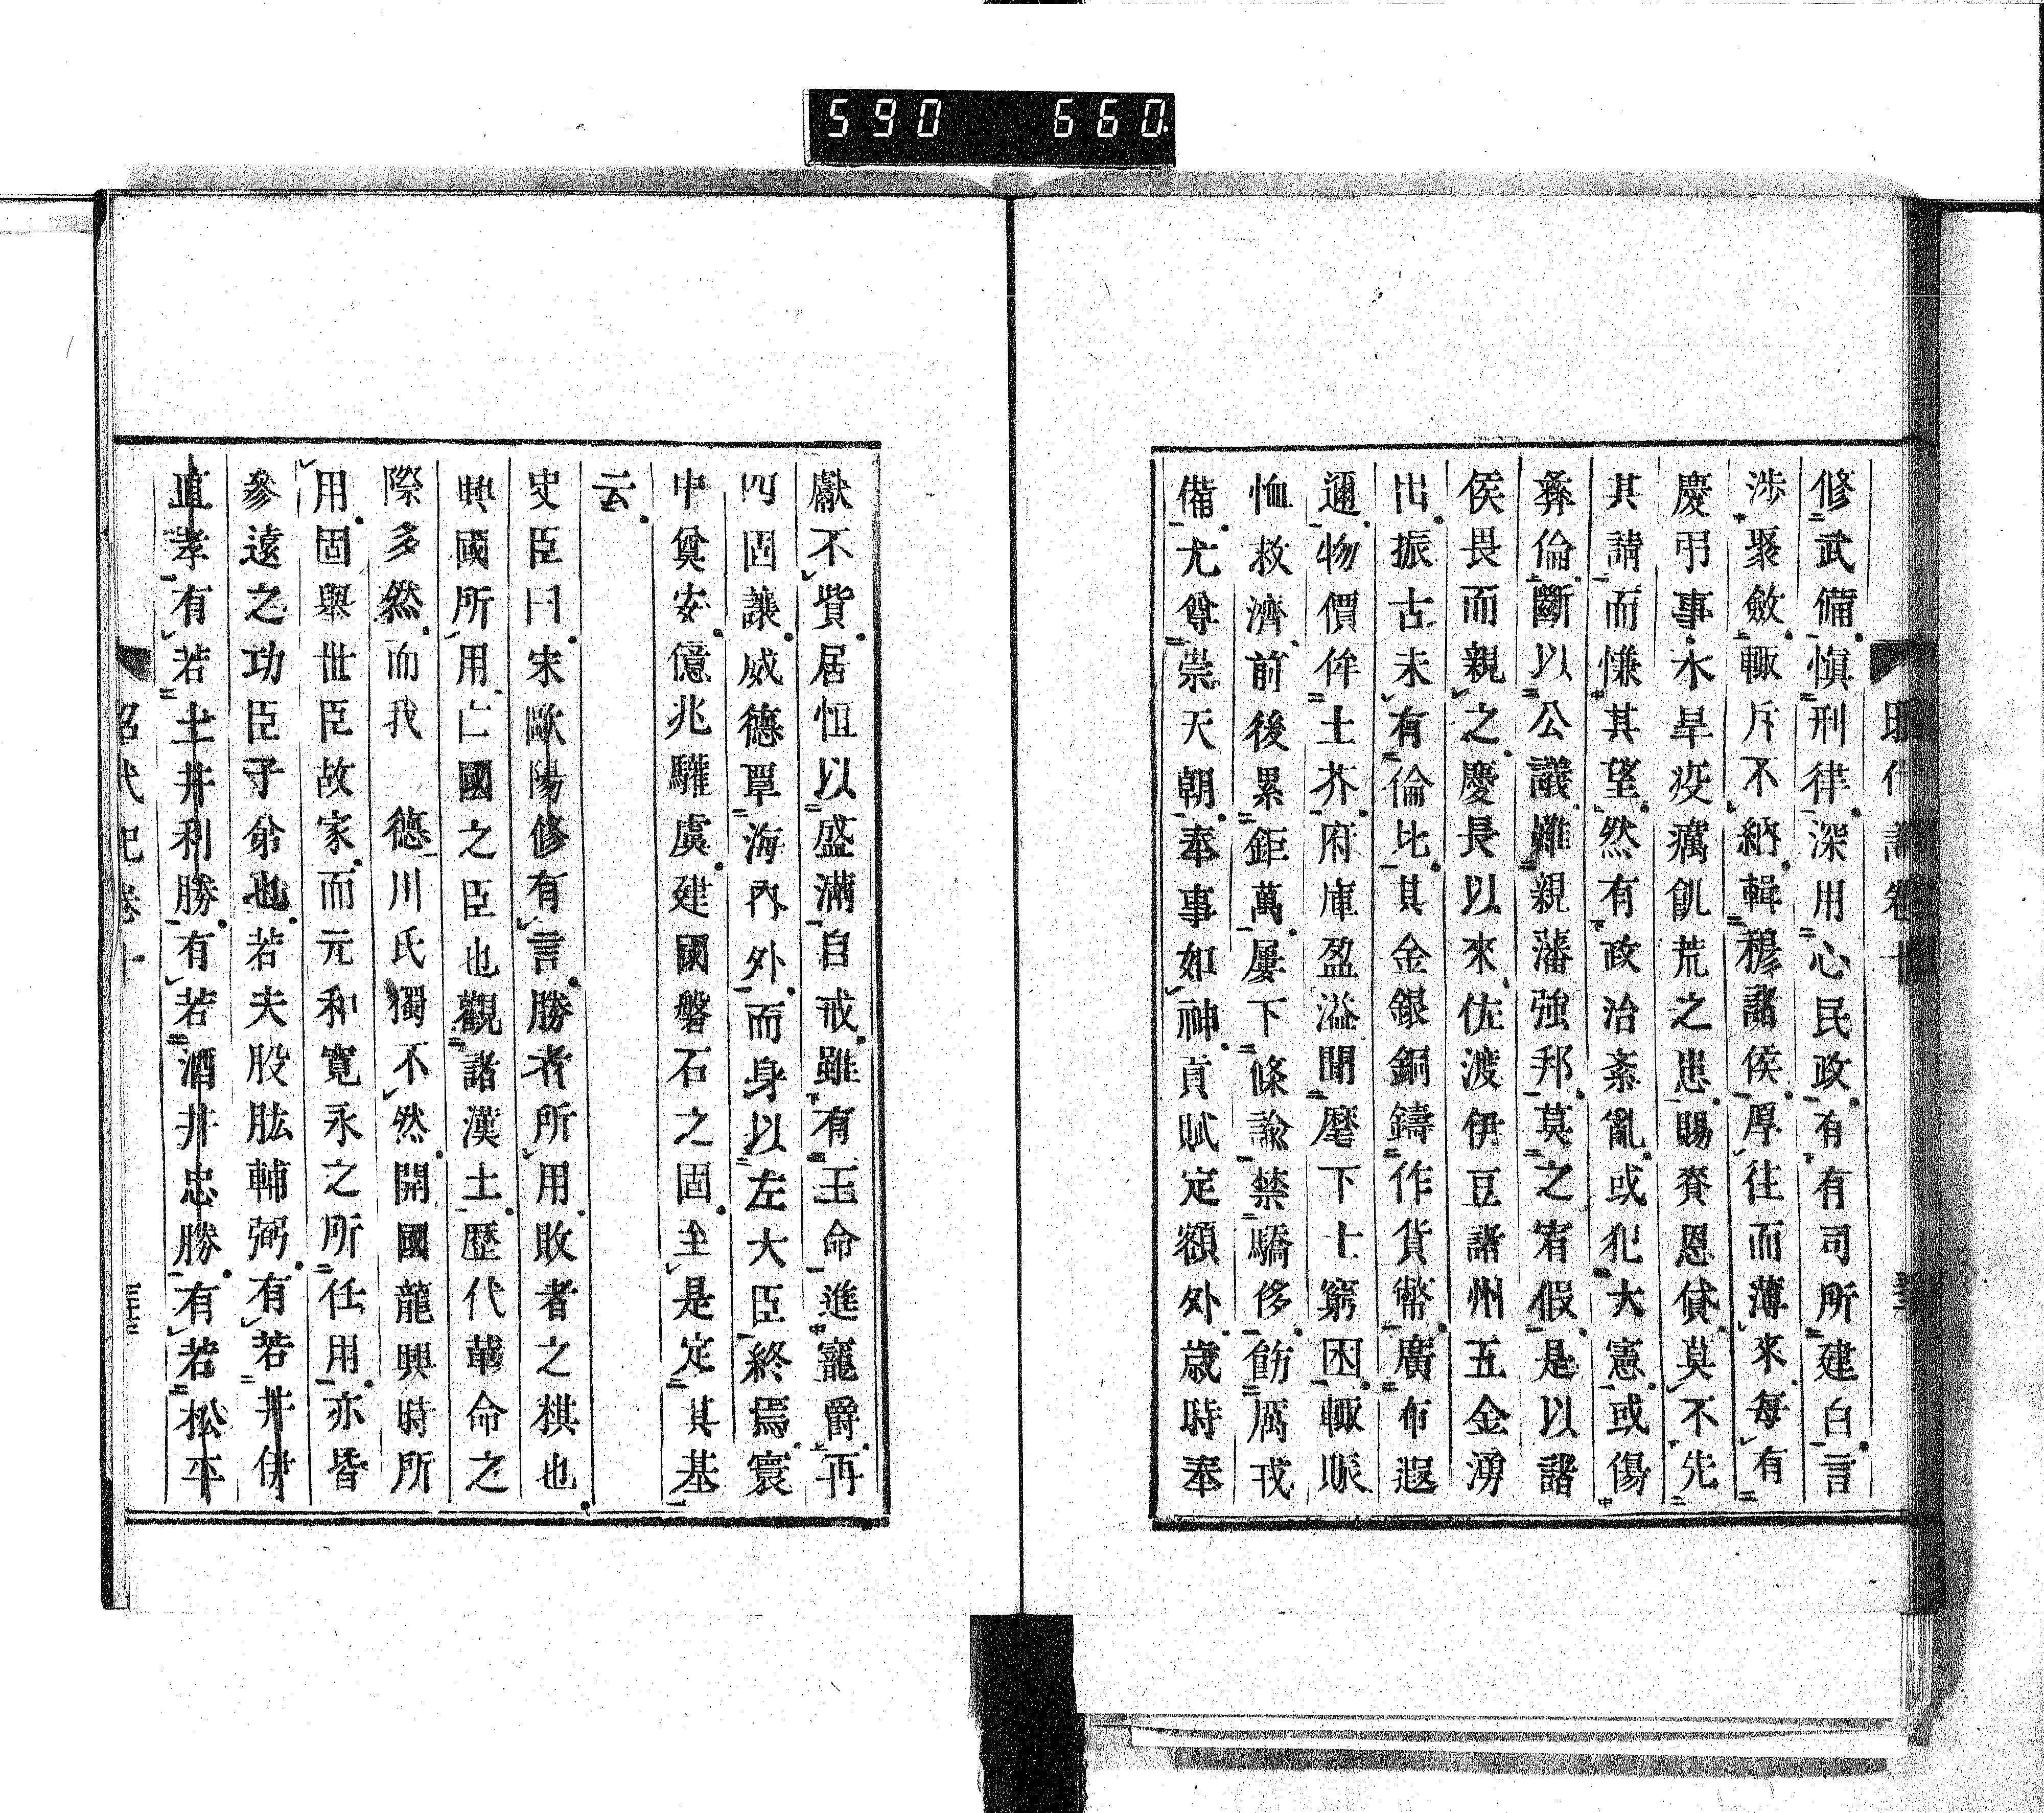 590 660
修武備愼刑律深用心民政有有司所建白言
涉聚斂輙斥不納輯穆諸侯厚往而薄來每有
慶弔事水旱疫癘飢荒之患賜賚恩貸莫不先
其請而慊其望然有政治紊亂或犯大憲或傷
彝倫斷以公議雖親藩強邦莫之宥假是以諸
侯畏而親之慶長以來佐渡伊豆諸州五金湧
出振古未有倫比其金銀銅鑄作貨幣廣布遐
邇物價侔土芥府庫盈溢間麾下士窮困輙賑
恤救濟前後累鉅萬屢下條諭禁驕侈飭厲戎
備尤尊崇天朝奉事如神貢賦定額外歳時奉
獻不貲居恒以盛滿自戒雖有王命進寵爵再
四固讓威德覃海內外而身以左大臣終焉寰
中奠安億兆驩虞建國磐石之固至是定其基
云
史臣曰宋歐陽修有言勝者所用敗者之棋也
興國所用亡國之臣也觀諸漢土歷代革命之
際多然而我 德川氏獨不然開國龍興時所
用固與世臣故家而元和寛永之所任用亦皆
參遠之功臣子弟也若夫股肱輔弼有若井伊
直孝有若土井利勝有若酒井忠勝有若松平
昭代記卷十